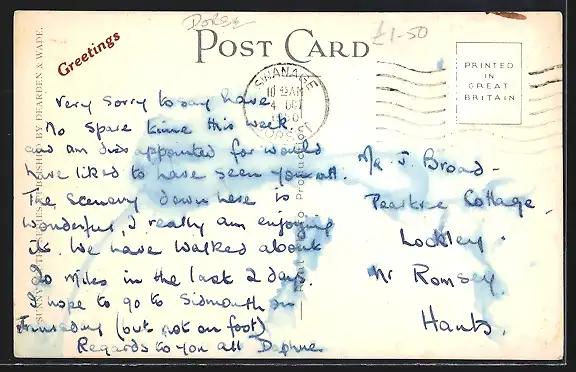 Dorset
£1-50
Greetings
POST CARD
PRINTED
IN
GREAT
BRITAIN
SWANAGE
4 OCT
DORSET
very sorry to say have
no spare time this week
and am disappointed for would
have liked to have seen you all.
The scenery down here is
wonderful, I really am enjoying
it. We have walked about
miles in the last 2 days.
I hope to go to Sidmouth on
Thursday (but not on foot)
Regards to you all Daphne
Mr J. Broad-
Cottage,
Lockley.
Nr Romsey.
Hants.
PUBLISHED BY DEARDEN & WADE.